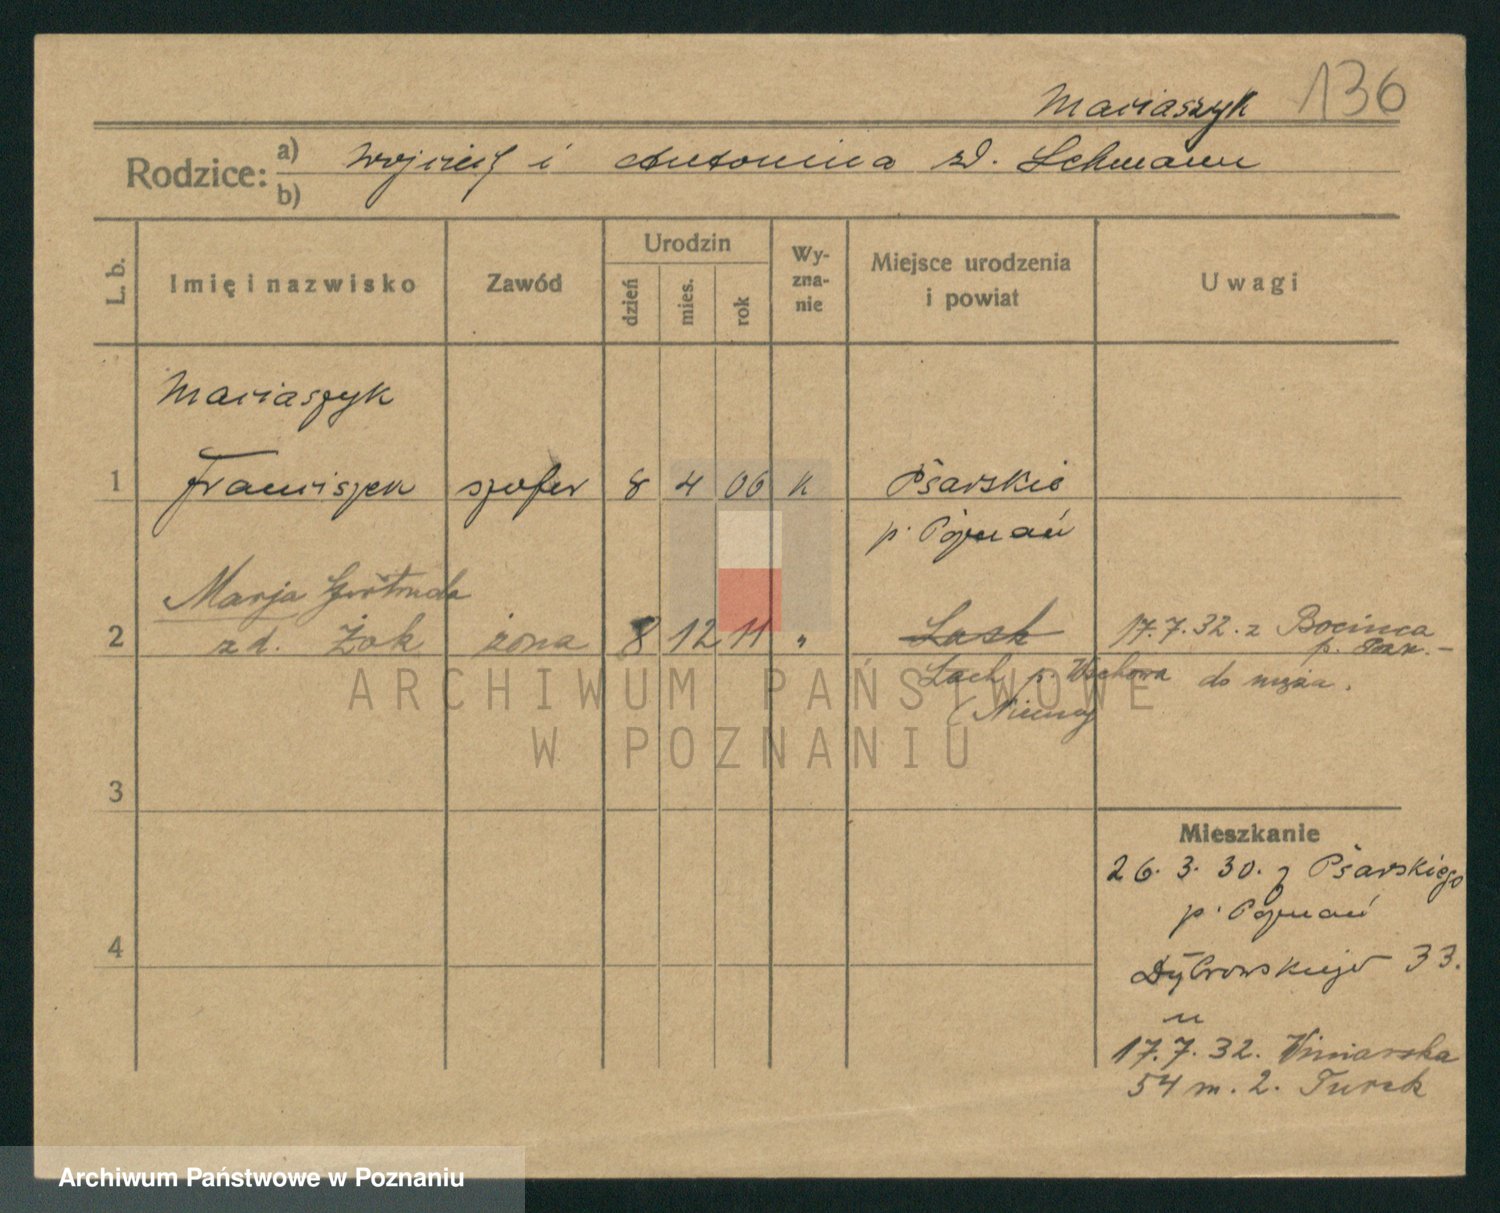 Maciaszyk 136
Rodzice: a) Wojciech i Antonina zd. Lehmann
b)
L. b.
Imię i nazwisko
Zawód
Urodzin
dzień
mies.
rok
Wy-
zna-
nie
Miejsce urodzenia
i powiat
Uwagi
Maciaszyk
1 Franciszek szofer 8 4 06 k Psarskie
p. Poznań
Marja Gertruda
2 zd. Żok żona 8 12 11 „ Lash 17.7.32. z Bocinca
p. Poz.-
Lach p. Wschowa do męża.
(Niemcy
3
Mieszkanie
26. 3. 30. z Psarskiego
p. Poznań
4
Dąbrowskiego 33.
u
17.7.32. Winiarska
54 m. 2. Turek
ARCHIWUM PAŃSTWOWE
W POZNANIU
Archiwum Państwowe w Poznaniu